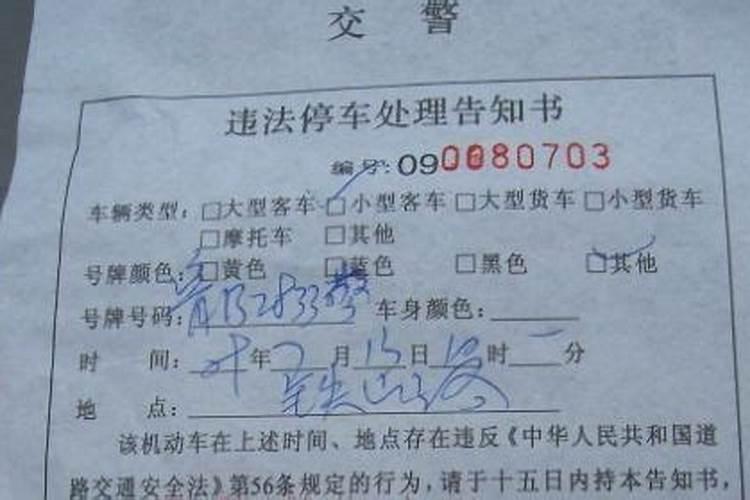 交 警
违法停车处理告知书
编号:090080703
车辆类型: □大型客车 □小型客车 □大型货车 □小型货车
□摩托车 □其他
号牌颜色: □黄色 □蓝色 □黑色 □其他
号牌号码: 警 车身颜色:
时 间: 年 7 月 15 日 时 分
地 点:
该机动车在上述时间、地点存在违反《中华人民共和国道
路交通安全法》第56条规定的行为,请于十五日内持本告知书,